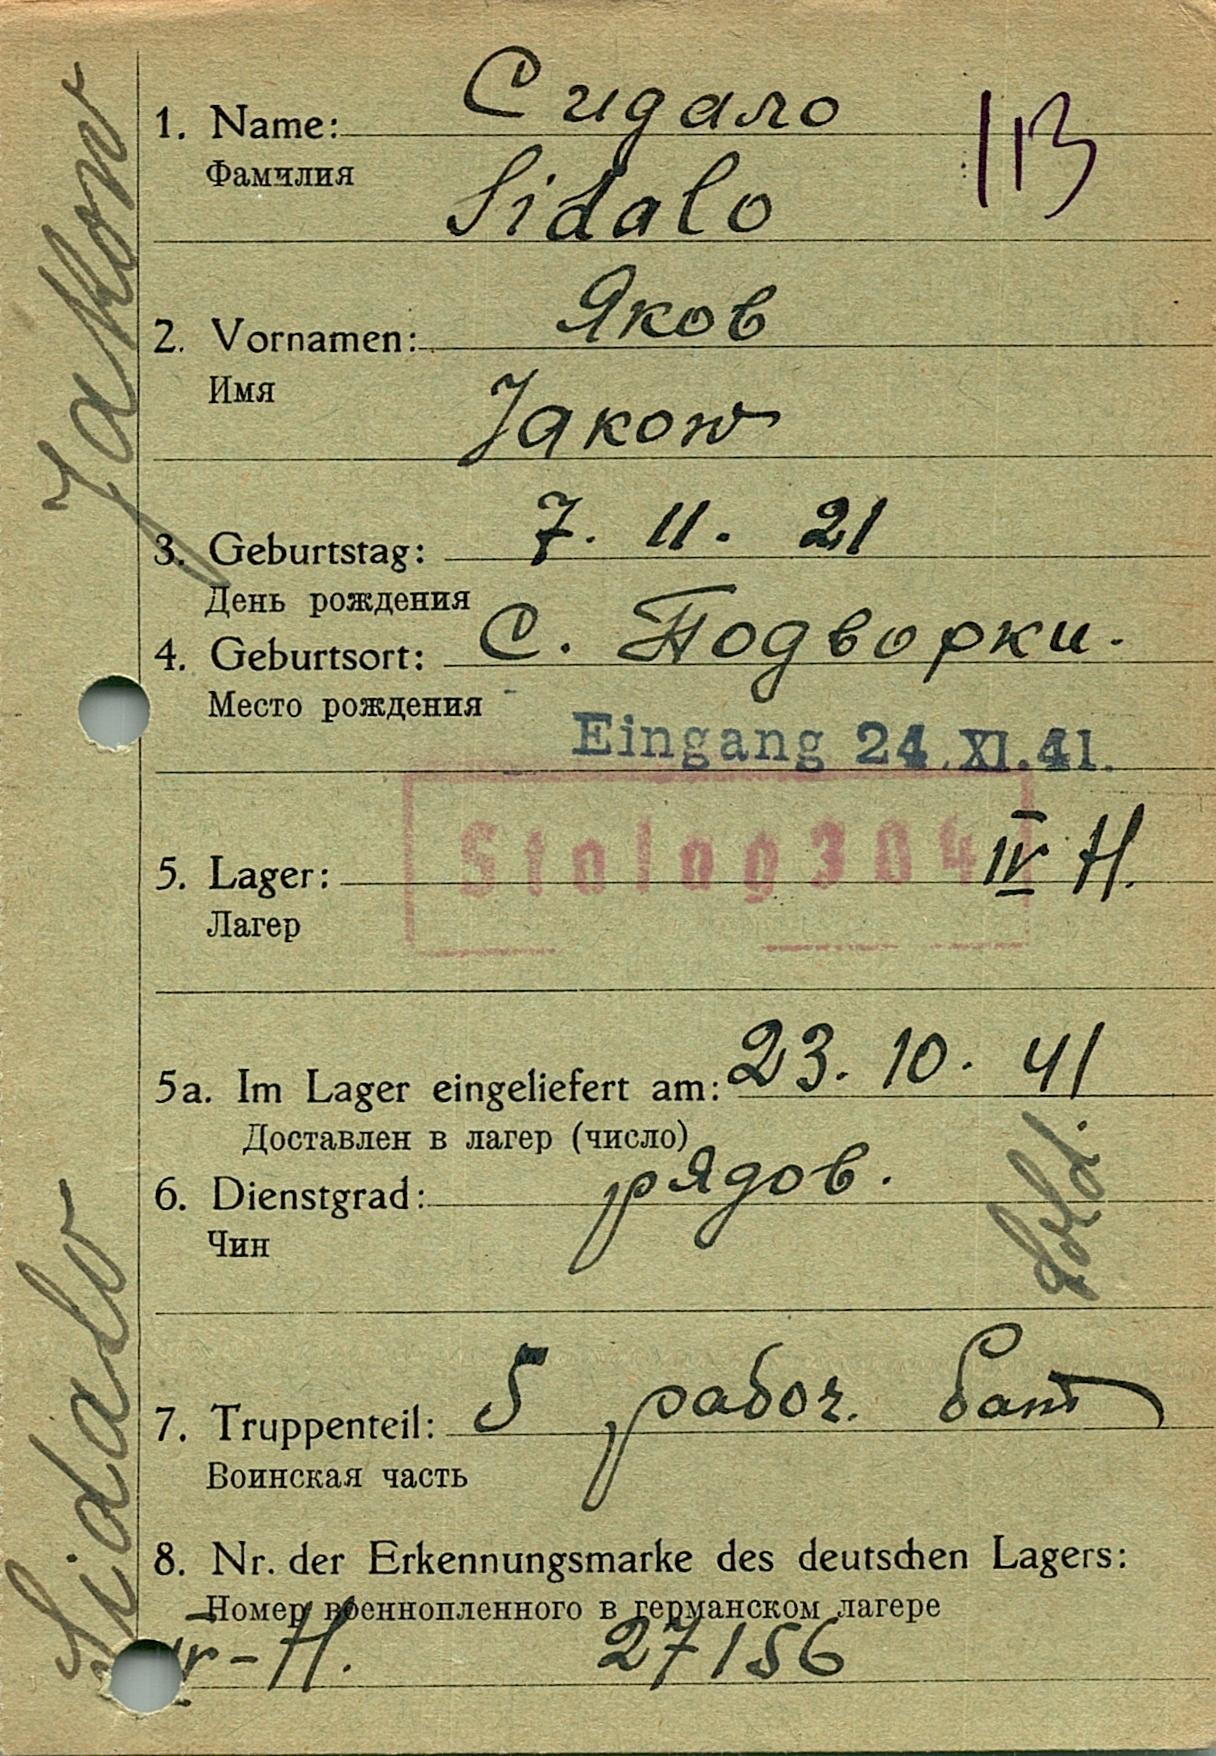 1. Name: Сидало
Фамилия
Sidalo
2. Vornamen: Яков
Имя
Jакow
3. Geburtstag: 7. 11. 21
День рождения
4. Geburtsort: С. Подворки.
Место рождения
Eingang 24.XI.41.
Stalag 304
5. Lager: IV H.
Лагер
5a. Im Lager eingeliefert am: 23. 10. 41
Доставлен в лагер (число)
6. Dienstgrad: рядов.
Чин
Sold.
7. Truppenteil: 5 рабоч. бат
Воинская часть
8. Nr. der Erkennungsmarke des deutschen Lagers:
Номер военнопленного в германском лагере
IV-H. 27156
Sidalo Jakow